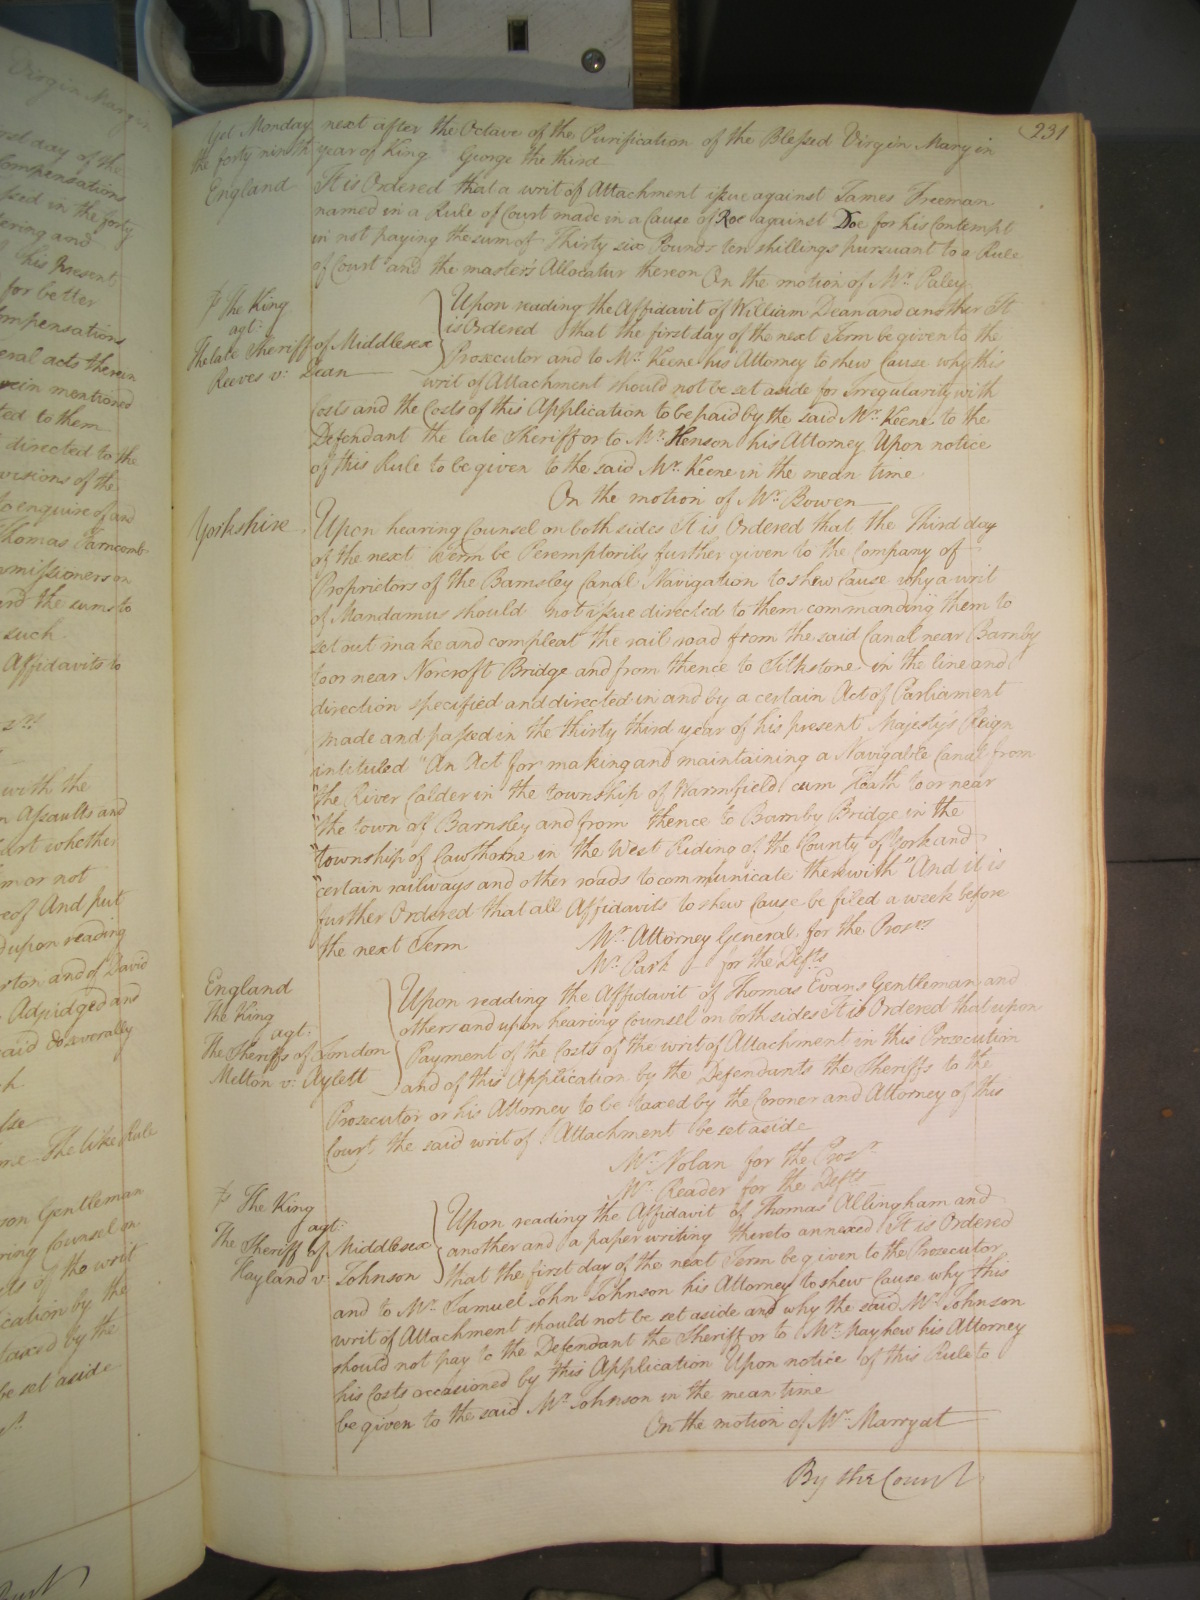 231
Yet Monday next after the Octave of the Purification of the Blessed Virgin Mary in
the forty ninth year of King George the third
England It is Ordered that a writ of Attachment issue against James Freeman
named in a Rule of Court made in a Cause of Roe against Doe for his Contempt
in not paying the sum of Thirty six Pounds ten shillings pursuant to a Rule
of Court and the master's Allocatur thereon On the motion of Mr. Paley
The King
agt:
The late Sheriff of Middlesex
Reeves v: Dean
Upon reading the Affidavit of William Dean and another It
is Ordered that the first day of the next Term be given to the
Prosecutor and to Mr. Keene his Attorney to shew Cause why this
writ of Attachment should not be set aside for Irregularity with
Costs and the Costs of this Application to be paid by the said Mr. Keene to the
Defendant the late Sheriff or to Mr. Henson his Attorney Upon notice
of this Rule to be given to the said Mr. Keene in the mean time
On the motion of Mr. Bowen
Yorkshire Upon hearing Counsel on both sides It is Ordered that the Third day
of the next Term be Peremptorily further given to the Company of
Proprietors of the Barnsley Canal Navigation to shew Cause why a writ
of Mandamus should not issue directed to them commanding them to
set out make and compleat the rail road from the said Canal near Barnby
to or near Norcroft Bridge and from thence to Silkstone in the line and
direction specified and directed in and by a certain Act of Parliament
made and passed in the thirty third year of his present Majesty's Reign
intituled "An Act for making and maintaining a Navigable Canal from
"the River Calder in the township of Warmfield cum Heath to or near
"the town of Barnsley and from thence to Barnby Bridge in the
"township of Cawthorne in the West Riding of the County of York and
"certain railways and other roads to communicate therewith" And it is
further Ordered that all Affidavits to shew Cause be filed a week before
the next Term
Mr. Attorney General for the Prosrs
Mr. Park for the Defts
England
The King
agt:
The Sheriffs of London
Melton v: Aylett
Upon reading the Affidavit of Thomas Evans Gentleman and
others and upon hearing Counsel on both sides It is Ordered that upon
Payment of the Costs of the writ of Attachment in this Prosecution
and of this Application by the Defendants the Sheriffs to the
Prosecutor or his Attorney to be taxed by the Coroner and Attorney of this
Court the said writ of Attachment be set aside
Mr. Nolan for the Prosr
Mr. Reader for the Defts
The King
agt:
The Sheriff of Middlesex
Hayland v Johnson
Upon reading the Affidavit of Thomas Allingham and
another and a paper writing thereto annexed It is Ordered
that the first day of the next Term be given to the Prosecutor
and to Mr. Samuel John Johnson his Attorney to shew Cause why this
writ of Attachment should not be set aside and why the said Mr. Johnson
should not pay to the Defendant the Sheriff or to Mr. Mayhew his Attorney
his Costs occasioned by this Application Upon notice of this Rule to
be given to the said Mr. Johnson in the mean time
On the motion of Mr. Marryat
By the Court